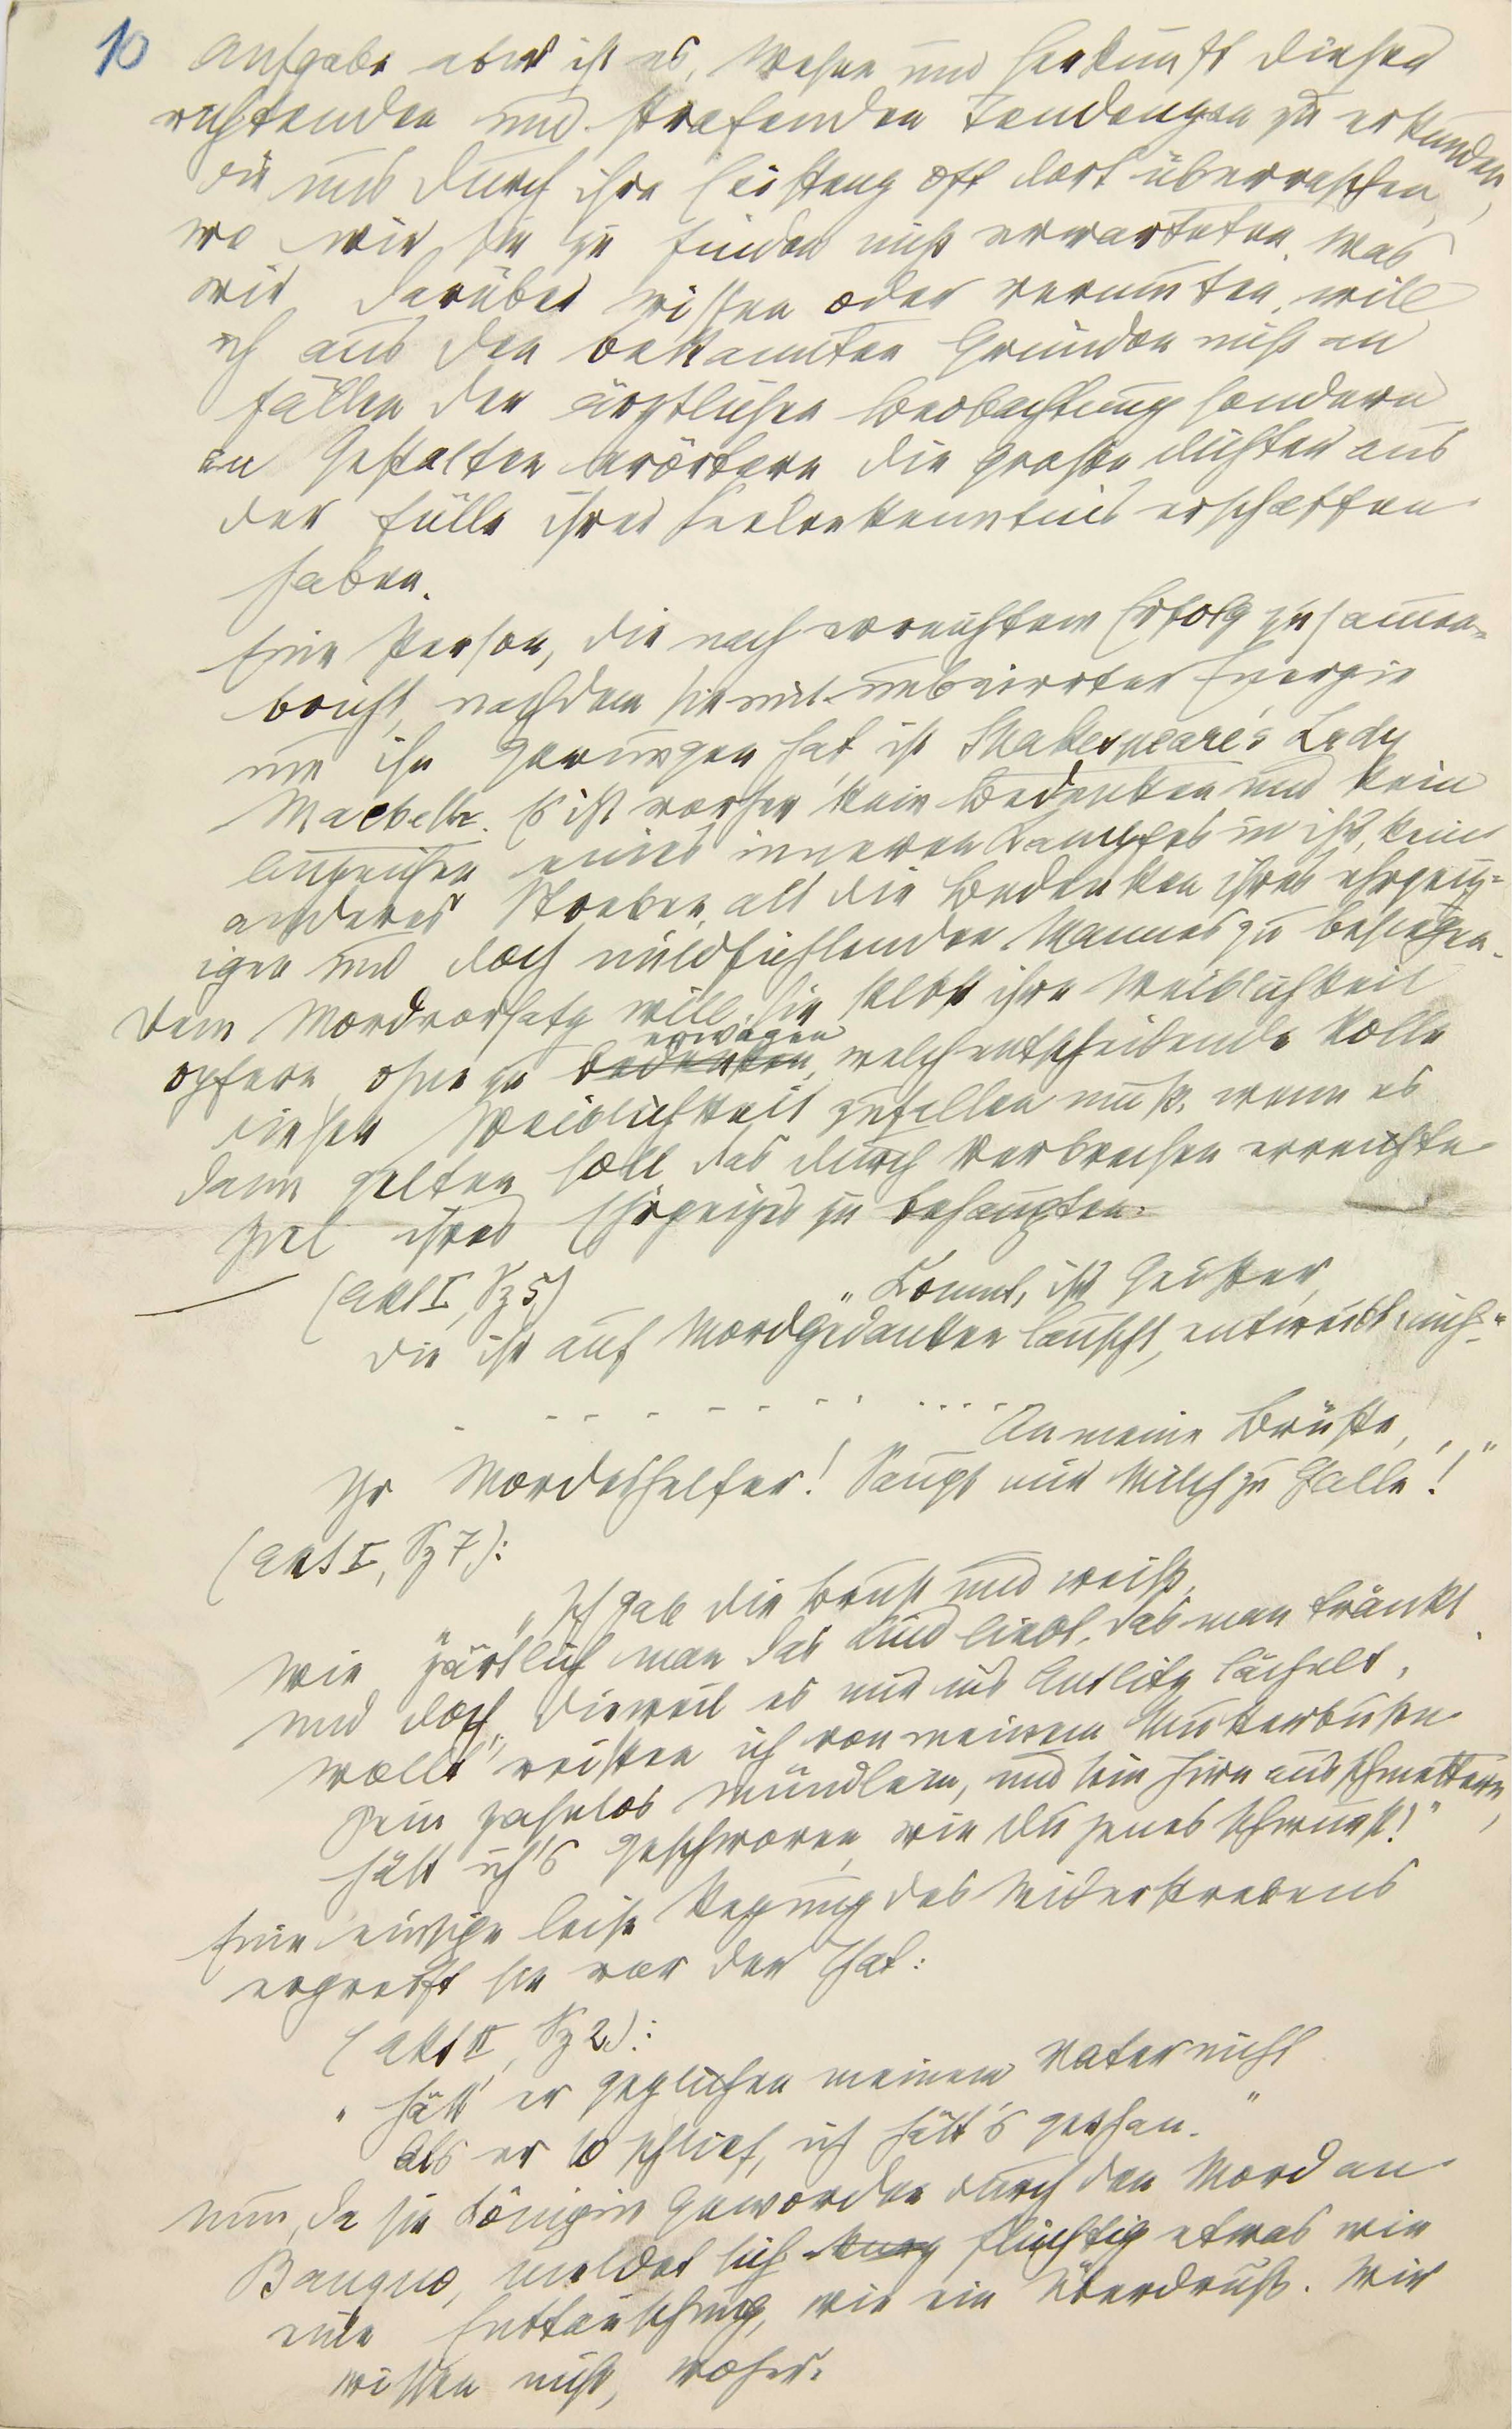 10 Aufgabe aber ist es, Wesen und Herkunft dieser
richtenden und strafenden Tendenzen zu erkunden,
die uns durch ihre Leistung oft dort überraschen,
wo wir sie zu finden nicht erwarteten. Was
wir darüber wissen oder vermuten, will
ich aus den bekannten Gründen nicht an
Fällen der ärztlichen Beobachtung sondern
an Gestalten erörtern die große Dichter aus
der Fülle ihrer Seelenkenntnis erschaffen
haben.
Eine Person, die nach erreichtem Erfolg zusammen-
bricht, nachdem sie mit unbeirrter Energie
um ihn gerungen hat, ist Shakespeare's Lady
Macbeth. Es ist vorher kein Bedenken und kein
Anzeichen eines inneren Kampfes in ihr, kein
anderes Streben, als die Bedenken ihres ehrgeiz-
igen und doch mildfühlenden Mannes zu besiegen.
Dem Mordvorsatz will sie selbst ihre Weiblichkeit
erwägen
opfern, ohne zu bedenken, welch entscheidende Rolle
dieser Weiblichkeit zufallen muß, wenn es
dann gelten soll das durch Verbrechen erreichte
Ziel ihres Ehrgeizes zu behaupten.
(Akt I, Sz 5) „Kommt, ihr Geister,
die ihr auf Mordgedanken lauscht, entweibt mich-"
. - - - - - - - - . . . . „An meine Brüste,
Ihr Mordeshelfer! Saugt mir Milch zu Galle!"
(Akt I, Sz 7):
„Ich gab die Brust und weiß,
Wie zärtlich man das Kind liebt, das man tränkt.
und doch, dieweil es mir ins Antlitz lächelt,
wollt' reißen ich von meinem Mutterbusen
sein zahnlos Mündlein, und sein Hirn ausschmettern,
hätt ich's geschworen, wie du jenes schwurst!"
Eine einzige leise Regung des Widerstrebens
ergreift sie vor der That:
(Akt II, Sz 2):
„Hätt' er geglichen meinem Vater nicht
Als er so schlief, ich hätt's gethan."
Nun, da sie Königin geworden durch den Mord an
Banquo, meldet sich kurz flüchtig etwas wie
eine Enttäuschung, wie ein Überdruß. Wir
wissen nicht, woher.